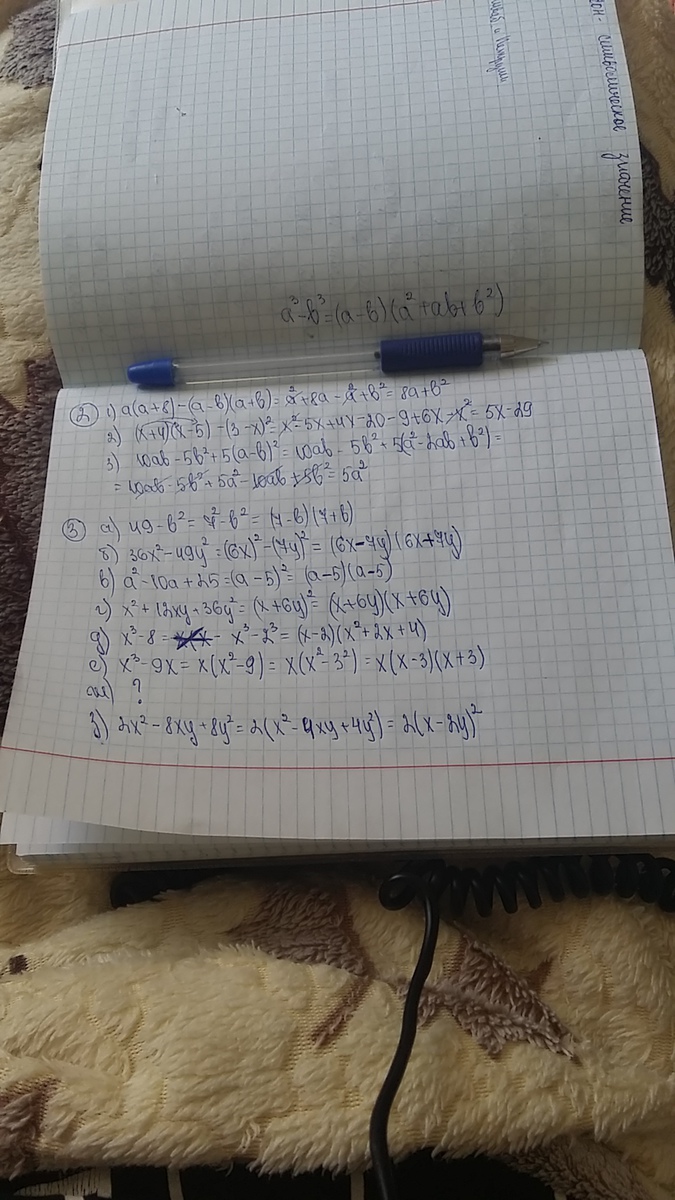 символическое значение
a³-b³=(a-b)(a²+ab+b²)
② 1) a(a+8)-(a-b)(a+b)=a²+8a-a²+b²=8a+b²
2) (x+4)(x-5)-(3-x)²=x²-5x+4x-20-9+6x-x²=5x-29
3) 10ab-5b²+5(a-b)²=10ab-5b²+5(a²-2ab+b²)=
=10ab-5b²+5a²-10ab+5b²=5a²
③ а) 49-b²=7²-b²=(7-b)(7+b)
б) 36x²-49y²=(6x)²-(7y)²=(6x-7y)(6x+7y)
в) a²-10a+25=(a-5)²=(a-5)(a-5)
г) x²+12xy+36y²=(x+6y)²=(x+6y)(x+6y)
д) x³-8= - x³-2³=(x-2)(x²+2x+4)
е) x³-9x=x(x²-9)=x(x²-3²)=x(x-3)(x+3)
ж) ?
з) 2x²-8xy+8y²=2(x²-4xy+4y²)=2(x-2y)²